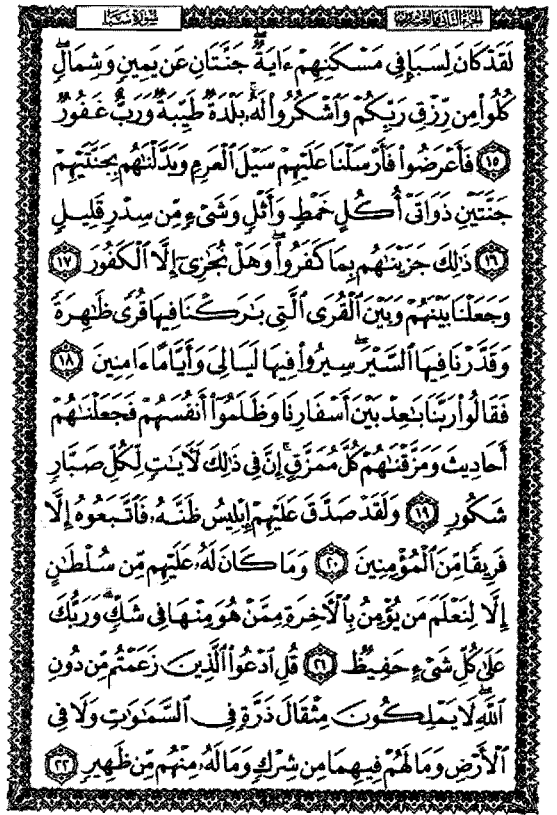 الجزء الثاني والعشرون
سورة سبأ
لَقَدْ كَانَ لِسَبَإٍ فِي مَسْكَنِهِمْ ءَايَةٌ ۖ جَنَّتَانِ عَن يَمِينٍ وَشِمَالٍ ۖ
كُلُوا۟ مِن رِّزْقِ رَبِّكُمْ وَٱشْكُرُوا۟ لَهُۥ ۚ بَلْدَةٌ طَيِّبَةٌ وَرَبٌّ غَفُورٌ
١٥ فَأَعْرَضُوا۟ فَأَرْسَلْنَا عَلَيْهِمْ سَيْلَ ٱلْعَرِمِ وَبَدَّلْنَٰهُم بِجَنَّتَيْهِمْ
جَنَّتَيْنِ ذَوَاتَىْ أُكُلٍ خَمْطٍ وَأَثْلٍ وَشَىْءٍ مِّن سِدْرٍ قَلِيلٍ
١٦ ذَٰلِكَ جَزَيْنَٰهُم بِمَا كَفَرُوا۟ ۖ وَهَلْ نُجَٰزِىٓ إِلَّا ٱلْكَفُورَ ١٧
وَجَعَلْنَا بَيْنَهُمْ وَبَيْنَ ٱلْقُرَى ٱلَّتِى بَٰرَكْنَا فِيهَا قُرًى ظَٰهِرَةً
وَقَدَّرْنَا فِيهَا ٱلسَّيْرَ ۖ سِيرُوا۟ فِيهَا لَيَالِىَ وَأَيَّامًا ءَامِنِينَ ١٨
فَقَالُوا۟ رَبَّنَا بَٰعِدْ بَيْنَ أَسْفَارِنَا وَظَلَمُوٓا۟ أَنفُسَهُمْ فَجَعَلْنَٰهُمْ
أَحَادِيثَ وَمَزَّقْنَٰهُمْ كُلَّ مُمَزَّقٍ ۚ إِنَّ فِى ذَٰلِكَ لَءَايَٰتٍ لِّكُلِّ صَبَّارٍ
شَكُورٍ ١٩ وَلَقَدْ صَدَّقَ عَلَيْهِمْ إِبْلِيسُ ظَنَّهُۥ فَٱتَّبَعُوهُ إِلَّا
فَرِيقًا مِّنَ ٱلْمُؤْمِنِينَ ٢٠ وَمَا كَانَ لَهُۥ عَلَيْهِم مِّن سُلْطَٰنٍ
إِلَّا لِنَعْلَمَ مَن يُؤْمِنُ بِٱلْءَاخِرَةِ مِمَّنْ هُوَ مِنْهَا فِى شَكٍّ ۗ وَرَبُّكَ
عَلَىٰ كُلِّ شَىْءٍ حَفِيظٌ ٢١ قُلِ ٱدْعُوا۟ ٱلَّذِينَ زَعَمْتُم مِّن دُونِ
ٱللَّهِ ۖ لَا يَمْلِكُونَ مِثْقَالَ ذَرَّةٍ فِى ٱلسَّمَٰوَٰتِ وَلَا فِى
ٱلْأَرْضِ وَمَا لَهُمْ فِيهِمَا مِن شِرْكٍ وَمَا لَهُۥ مِنْهُم مِّن ظَهِيرٍ ٢٢